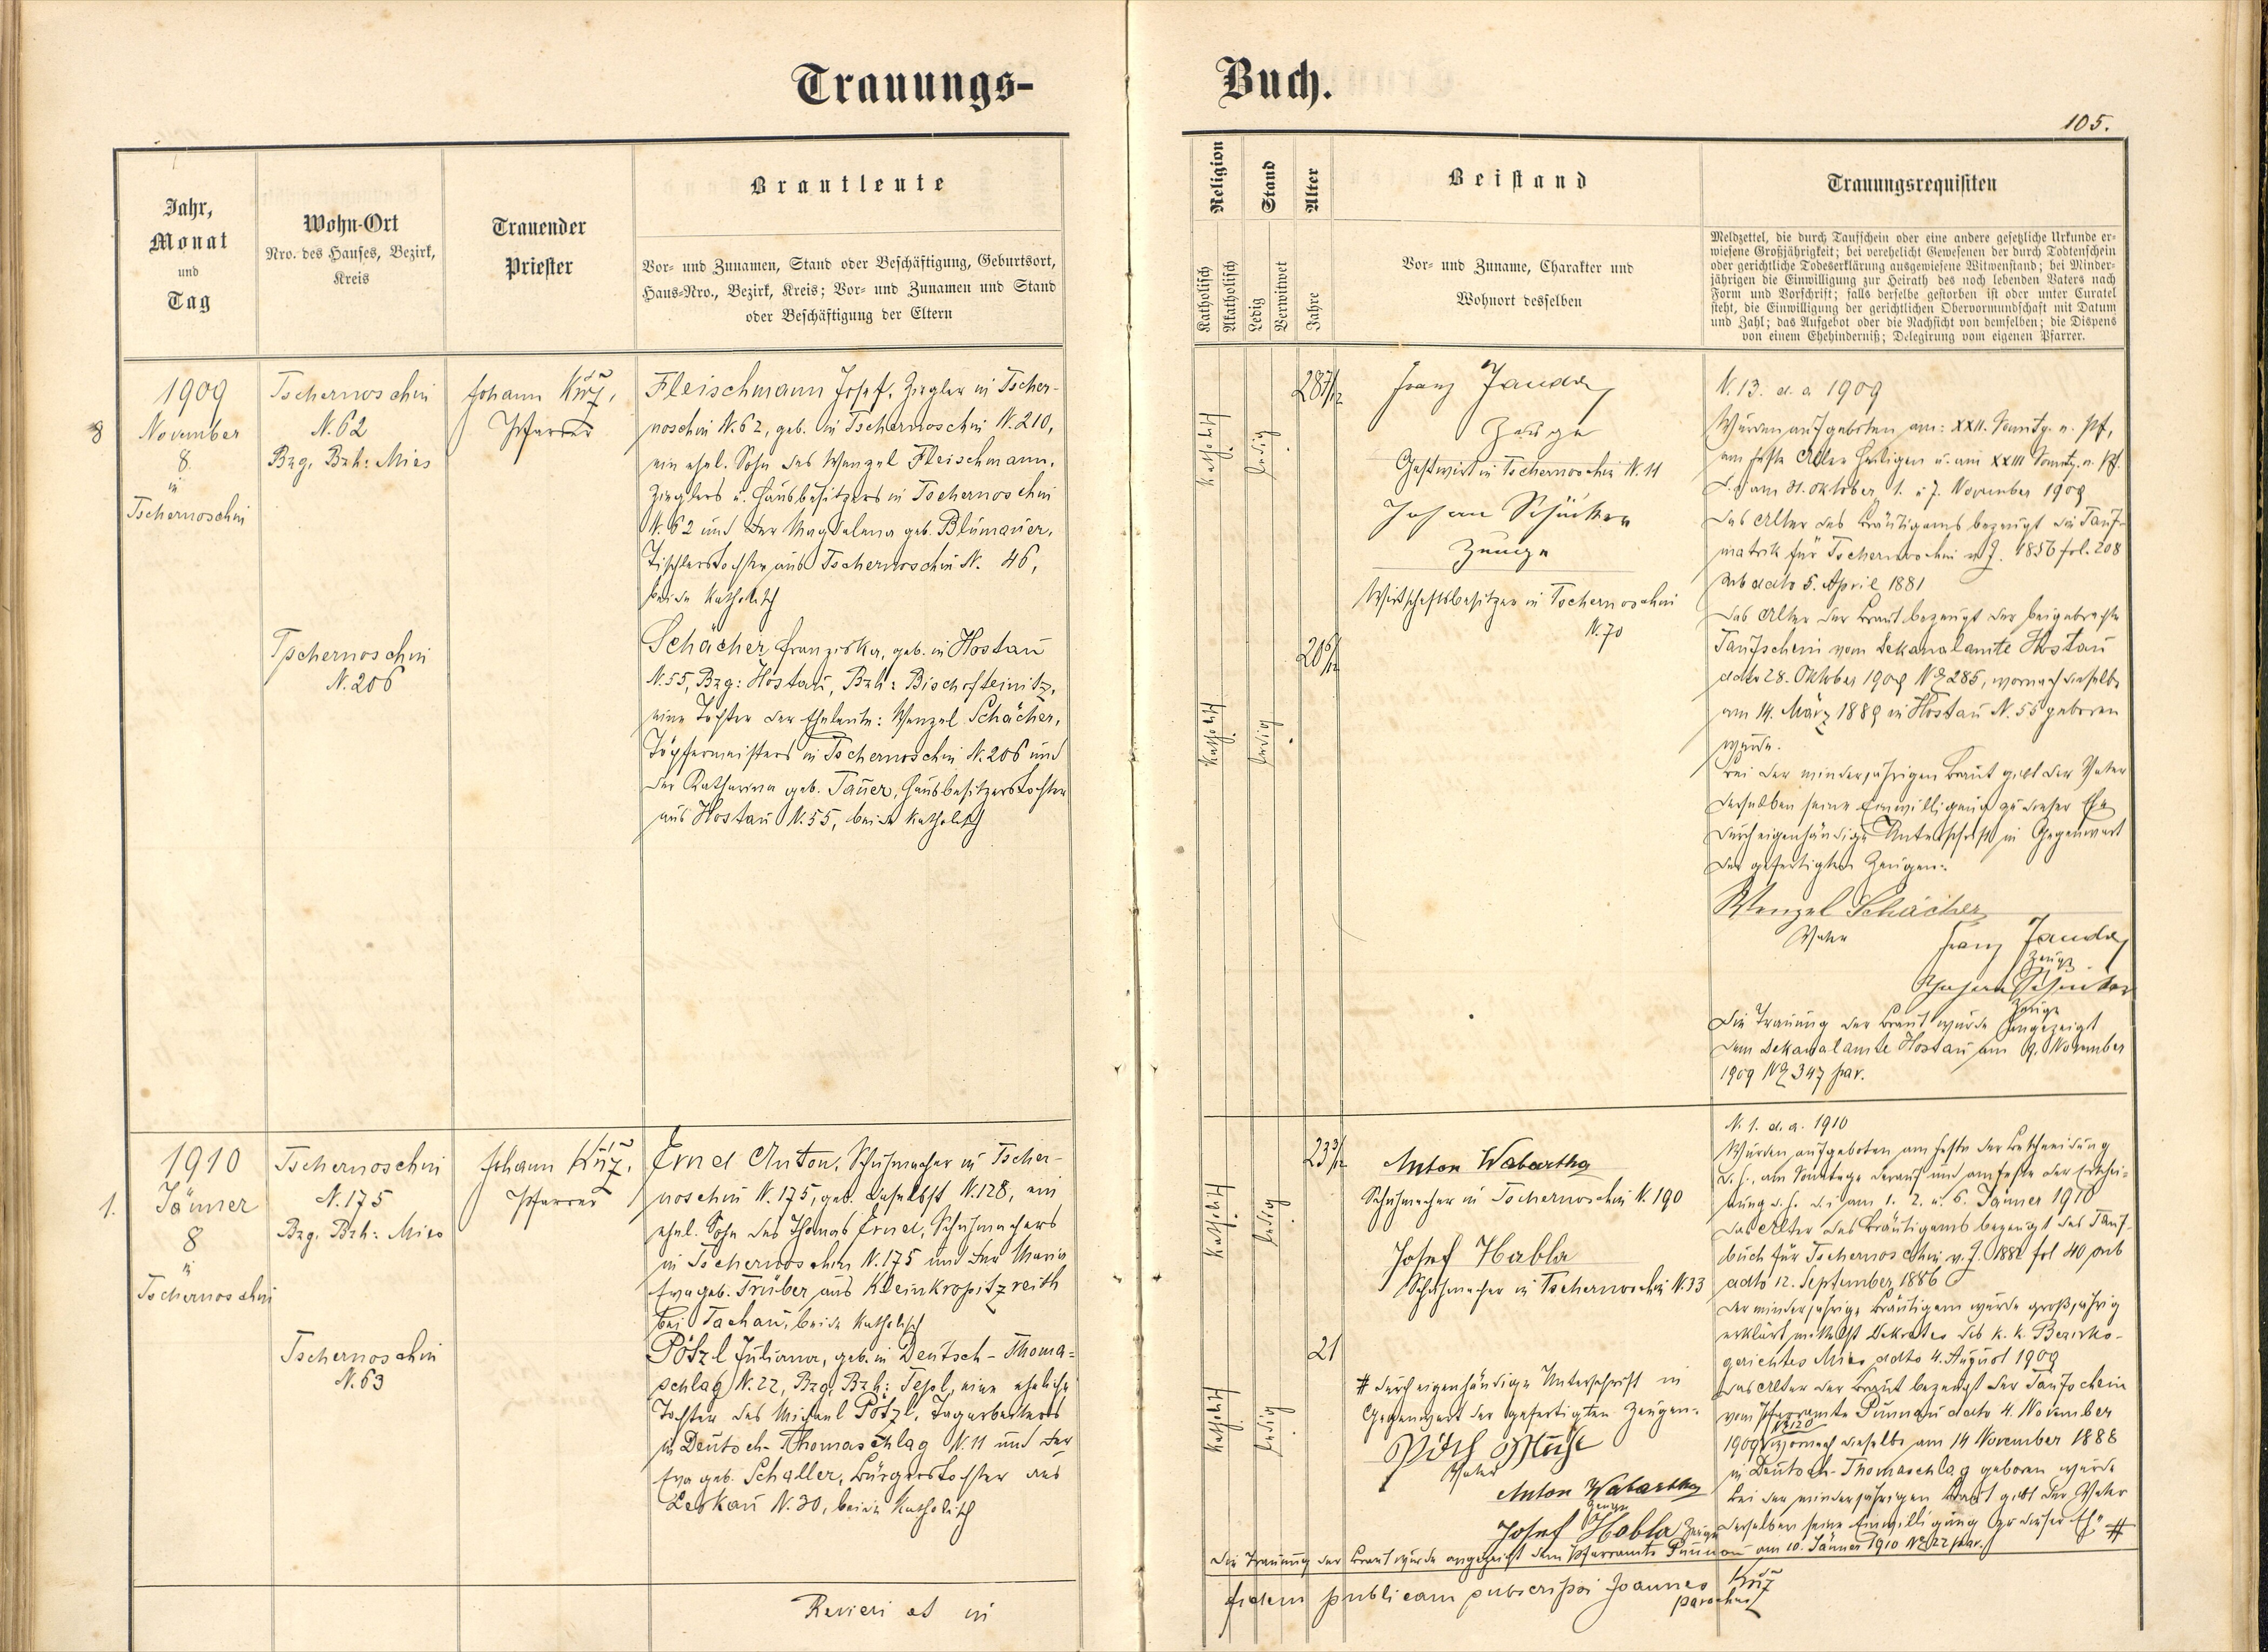 Trauungs-
Buch.
105.
Jahr,
Monat
und
Tag
Wohn-Ort
Nro. des Hauses, Bezirk,
Kreis
Trauender
Priester
Brautleute
Vor- und Zunamen, Stand oder Beschäftigung, Geburtsort,
Haus-Nro., Bezirk, Kreis; Vor- und Zunamen und Stand
oder Beschäftigung der Eltern
Religion
Katholisch
Akatholisch
Stand
Ledig
Verwitwet
Alter
Jahre
Beistand
Vor- und Zuname, Charakter und
Wohnort desselben
Trauungsrequisiten
Meldzettel, die durch Taufschein oder eine andere gesetzliche Urkunde er-
wiesene Großjährigkeit; bei verehelicht Gewesenen der durch Todtenschein
oder gerichtliche Todeserklärung ausgewiesene Witwenstand; bei Minder-
jährigen die Einwilligung zur Heirath des noch lebenden Vaters nach
Form und Vorschrift; falls derselbe gestorben ist oder unter Curatel
steht, die Einwilligung der gerichtlichen Obervormundschaft mit Datum
und Zahl; das Aufgebot oder die Nachsicht von demselben; die Dispens
von einem Ehehinderniß; Delegirung vom eigenen Pfarrer.
8
1909
November
8.
in
Tschernoschin
Tschernoschin
N. 62
Bzg. Bzh: Mies
Johann
Pfarrer
Fleischmann Josef, Ziegler in Tscher-
noschin N. 62, geb. in Tschernoschin N. 210,
ein ehel. Sohn des Wenzel Fleischmann,
Zieglers u. Hausbesitzers in Tschernoschin
N. 62 und der Magdalena geb. Blumauer,
Tischlerstochter aus Tschernoschin N. 46,
beide katholisch
Tschernoschin
N. 206
Schächer Franziska, geb. in Hostau
N. 55, Bzg: Hostau, Bzh: Bischofteinitz,
eine Tochter der Eheleute: Wenzel Schächer,
Töpfermeisters in Tschernoschin N. 206 und
der Katharina geb. Tauer, Hausbesitzerstochter
aus Hostau N. 55, beide katholisch
katholisch
ledig
28 7/12
Franz
Zeuge
Gastwirt in Tschernoschin N. 11
Johann
Zeuge
Wirtschaftsbesitzer in Tschernoschin
N. 70
katholisch
ledig
20
N. 13. d. a. 1909
Wurden aufgeboten am: XXII. Sonntg. n. Pf,
am Feste Aller Heiligen u. am XXIII Sonntg. n. Pf.
d. i. am 31. Oktober, 1. u. 7. November 1909
Das Alter des Bräutigams bezeugt die Tauf-
matrik für Tschernoschin v. J. 1856 fol. 208
sub ddto 5. April 1881
Das Alter der Braut bezeugt der beigebrachte
Taufschein vom Dekanalamte Hostau
ddto 28. Oktober 1909 No 285, wornach dieselbe
am 14. März 1889 in Hostau N. 55 geboren
wurde.
Bei der minderjährigen Braut gibt der Vater
derselben seine Einwilligung zu dieser Ehe
durch eigenhändige Unterschrift in Gegenwart
der gefertigten Zeugen:
Wenzel Schächer
Vater
Franz
Zeuge
Johann
Zeuge
Die Trauung der Braut wurde angezeigt
dem Dekanalamte Hostau am 9. November
1909 No 347 par.
1.
1910
Jänner
8
in
Tschernoschin
Tschernoschin
N. 175
Bzg. Bzh: Mies
Johann
Pfarrer
Ernel Anton, Schuhmacher in Tscher-
noschin N. 175, geb. daselbst N. 128, ein
ehel. Sohn des Thomas Ernel, Schuhmachers
in Tschernoschin N. 175 und der Maria
Eva geb. Trüber aus Kleinkropitzreith
bei Tachau, beide katholisch
Tschernoschin
N. 63
Pötzl Juliana, geb. in Deutsch-Thoma-
schlag N. 22, Bzg. Bzh: Tepl, eine eheliche
Tochter des Michael Pötzl, Tagarbeiters
in Deutsch-Thomaschlag N. 11 und der
Eva geb. Schaller, Bürgerstochter aus
Leskau N. 30, beide katholisch
katholisch
ledig
23 3/12
Anton Wabartha
Schuhmacher in Tschernoschin N. 190
Josef Habla
Schuhmacher in Tschernoschin N. 33
katholisch
ledig
21
# durch eigenhändige Unterschrift in
Gegenwart der gefertigten Zeugen:
Vater
Anton Wabartha
Zeuge
Josef Habla Zeuge
N. 1. d. a. 1910
Wurden aufgeboten am Feste der Beschneidung
d. h., am Sonntage darauf und am Feste der Erschei-
nung d. h. d. i. am 1. 2. u. 6. Jänner 1910
Das Alter des Bräutigams bezeugt das Tauf-
buch für Tschernoschin v. J. fol 40 sub
ddto 12. September 1886
Der minderjährige Bräutigam wurde großjährig
erklärt mittelst Dekretes des k. k. Bezirks-
gerichtes Mies ddto 4. August 1909
Das Alter der Braut bezeugt der Taufschein
vom Pfarramte Punnau ddto 4. November
1909 wornach dieselbe am 14 November 1888
in Deutsch-Thomaschlag geboren wurde
Bei der minderjährigen Braut gibt der Vater
derselben seine Einwilligung zu dieser Ehe #
Die Trauung der Braut wurde angezeigt dem Pfarramte Punnau am 10. Jänner 1910 No 22 par.
Revieri et in
fidem publicam subscripsi Joannes
parochus